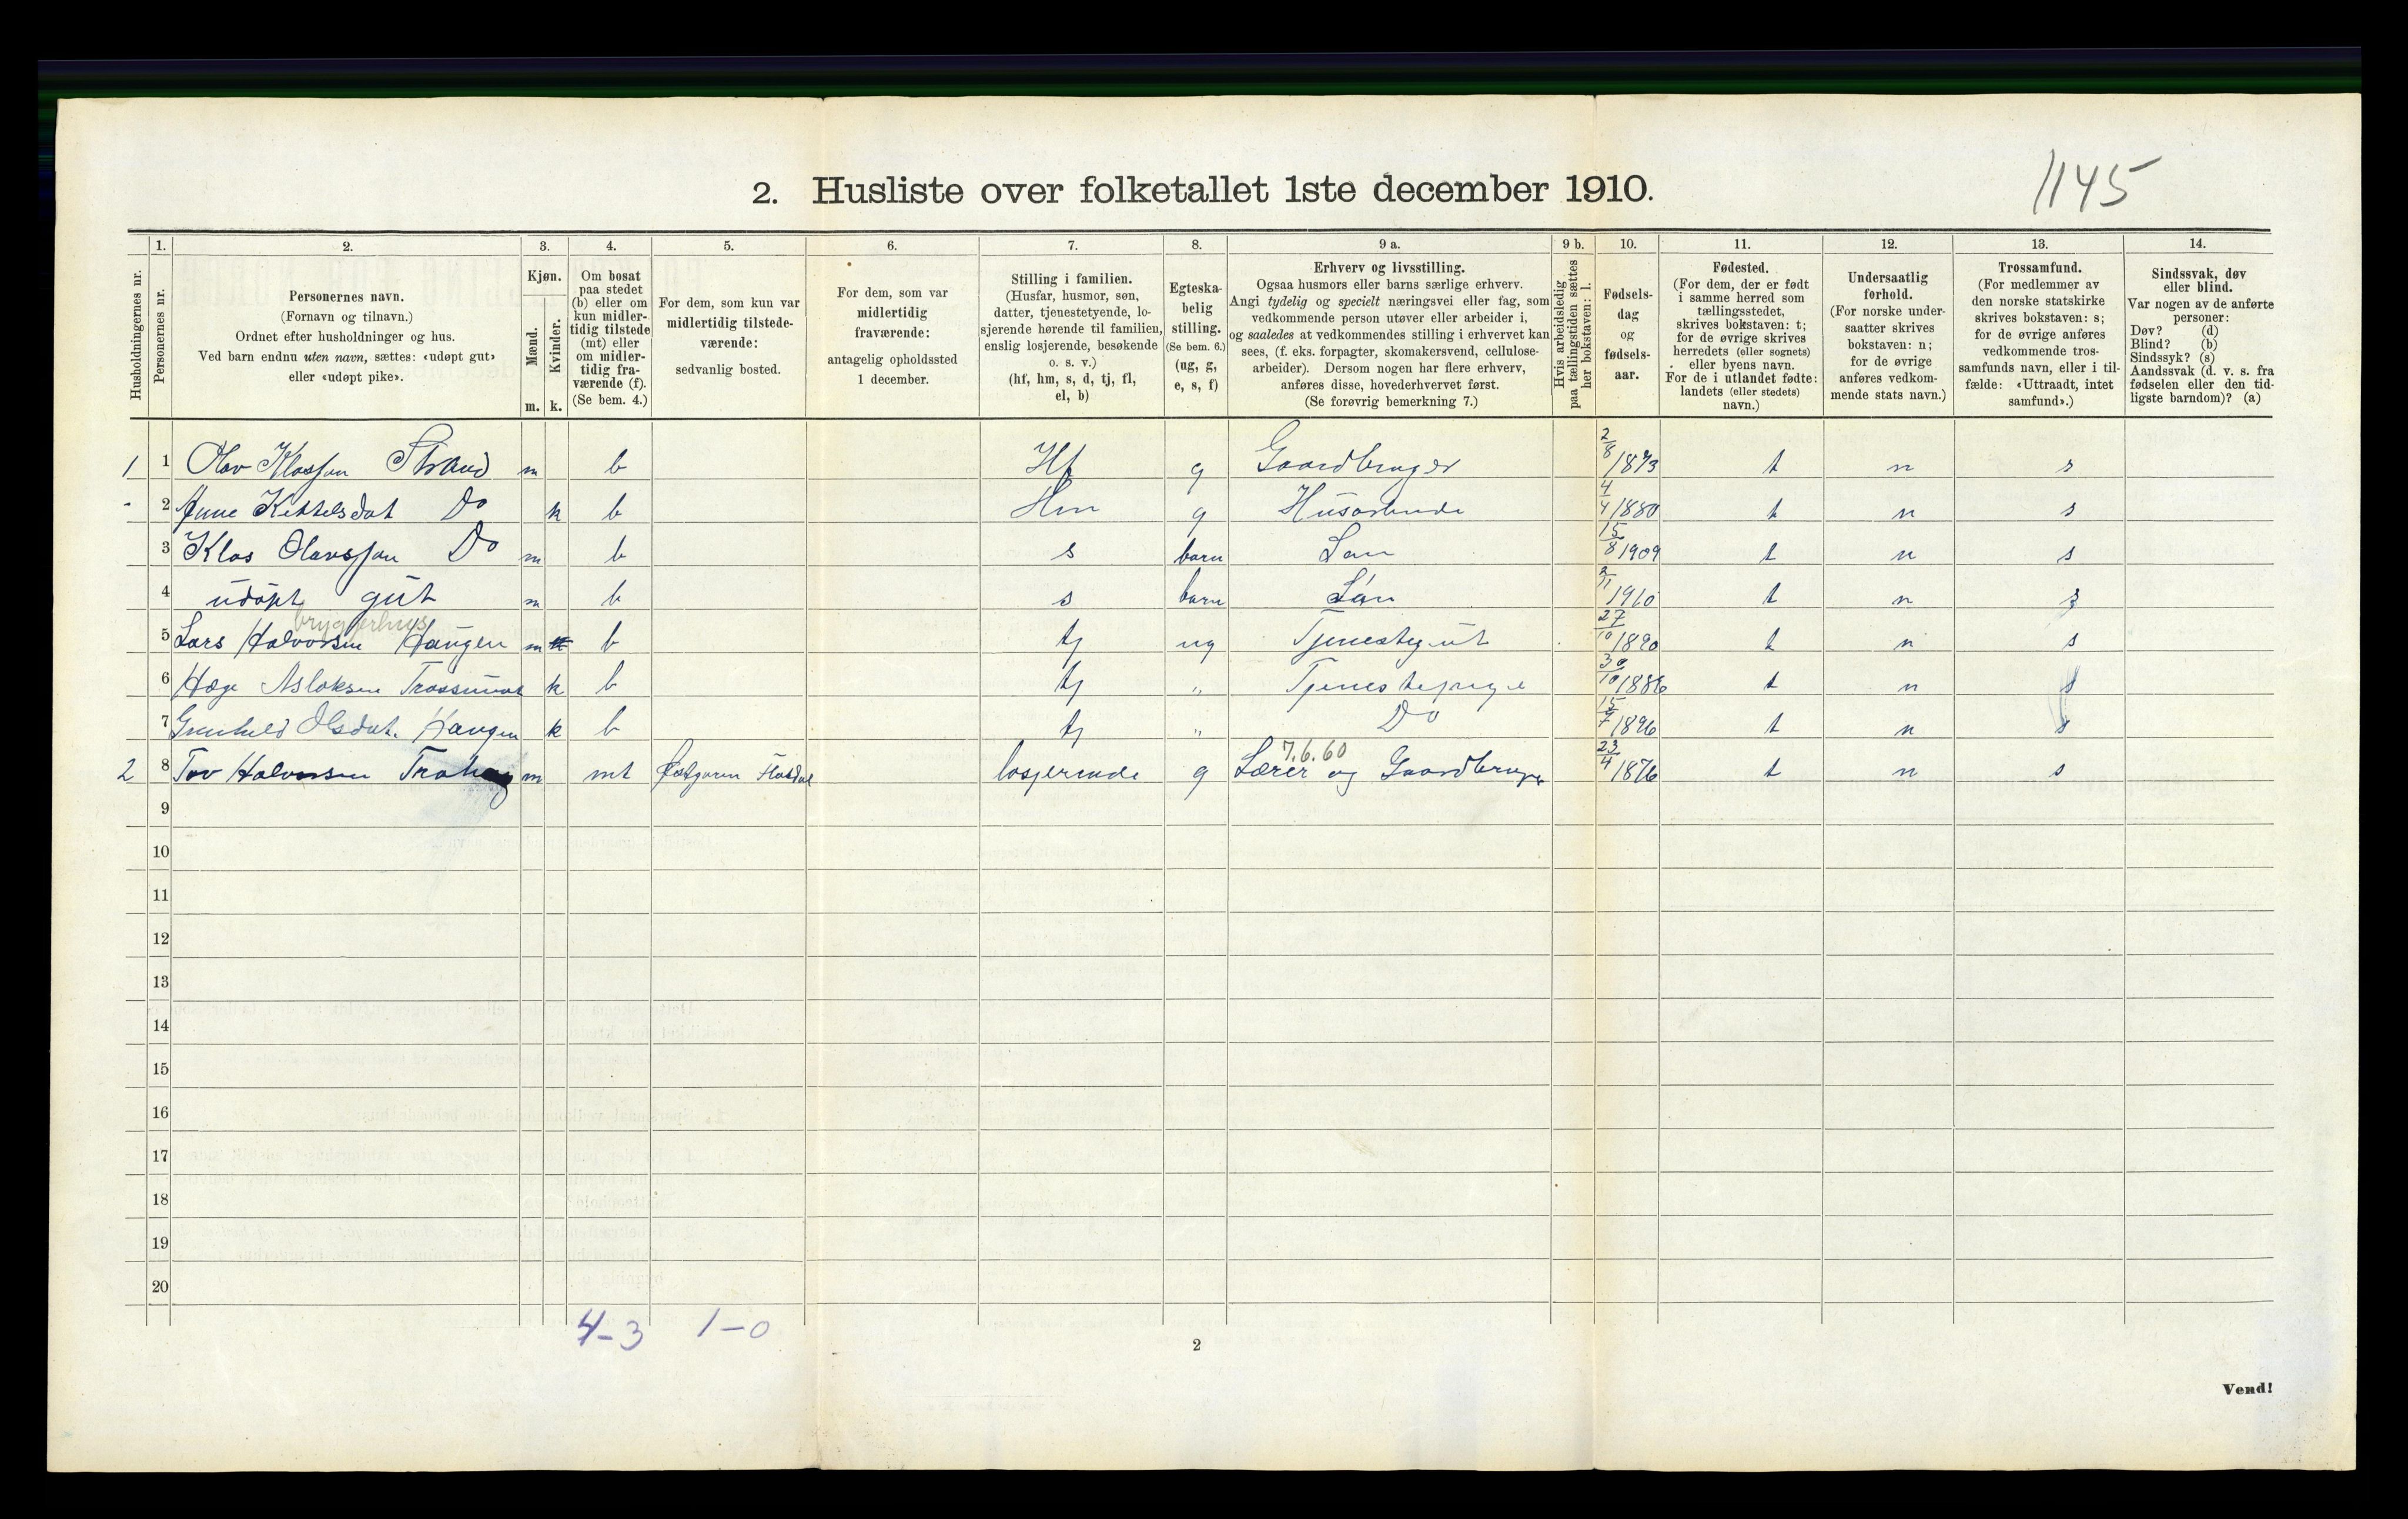 1145
2. Husliste over folketallet 1ste december 1910.
1. 2. 3. 4. 5. 6. 7. 8. 9 a. 9 b. 10. 11. 12. 13. 14.
Husholdningernes nr.
Personernes nr.
Personernes navn.
(Fornavn og tilnavn.)
Ordnet efter husholdninger og hus.
Ved barn endnu uten navn, sættes: «udøpt gut»
eller «udøpt pike».
Kjøn.
Mænd.
Kvinder.
m. k.
Om bosat
paa stedet
(b) eller om
kun midler-
tidig tilstede
(mt) eller
om midler-
tidig fra-
værende (f).
(Se bem. 4.)
For dem, som kun var
midlertidig tilstede-
værende:
sedvanlig bosted.
For dem, som var
midlertidig
fraværende:
antagelig opholdssted
1 december.
Stilling i familien.
(Husfar, husmor, søn,
datter, tjenestetyende, lo-
sjerende hørende til familien,
enslig losjerende, besøkende
o. s. v.)
(hf, hm, s, d, tj, fl,
el, b)
Egteska-
belig
stilling.
(Se bem. 6.)
(ug, g,
e, s, f)
Erhverv og livsstilling.
Ogsaa husmors eller barns særlige erhverv.
Angi tydelig og specielt næringsvei eller fag, som
vedkommende person utøver eller arbeider i,
og saaledes at vedkommendes stilling i erhvervet kan
sees, (f. eks. forpagter, skomakersvend, cellulose-
arbeider). Dersom nogen har flere erhverv,
anføres disse, hovederhvervet først.
(Se forøvrig bemerkning 7.)
Hvis arbeidsledig
paa tællingstiden sættes
her bokstaven: l.
Fødsels-
dag
og
fødsels-
aar.
Fødested.
(For dem, der er født
i samme herred som
tællingsstedet,
skrives bokstaven: t;
for de øvrige skrives
herredets (eller sognets)
eller byens navn.
For de i utlandet fødte:
landets (eller stedets)
navn.)
Undersaatlig
forhold.
(For norske under-
saatter skrives
bokstaven: n;
for de øvrige
anføres vedkom-
mende stats navn.)
Trossamfund.
(For medlemmer av
den norske statskirke
skrives bokstaven: s;
for de øvrige anføres
vedkommende tros-
samfunds navn, eller i til-
fælde: «Uttraadt, intet
samfund».)
Sindssvak, døv
eller blind.
Var nogen av de anførte
personer:
Døv? (d)
Blind? (b)
Sindssyk? (s)
Aandssvak (d. v. s. fra
fødselen eller den tid-
ligste barndom)? (a)
1 1 Olav Klassen Strand m b Hf g Gaardbruger 2/8 1873 t n s
- 2 Anne Kittelsdat Do k b Hm g Husarbeide 4/4 1880 t n s
3 Klas Olavssøn Do m b s barn Søn 15/8 1909 t n s
4 udøpt gut m b s barn Søn 1910 t n s
bryggerhus
5 Lars Halvorsen Haugen m b tj ug Tjenestegut 27/10 1890 t n s
6 Hæge Aslaksen k b tj „ Tjenestepige 30/10 1886 t n s
7 Gunhild Olsdat. Haugen k b tj „ Do 15/7 1896 t n s
7.6.60
2 8 Tov Halvorsen m mt losjerende g Lærer og Gaardbruger 23/4 1876 t n s
9
10
11
12
13
14
15
16
17
18
19
20
4-3 1-0
2
Vend!